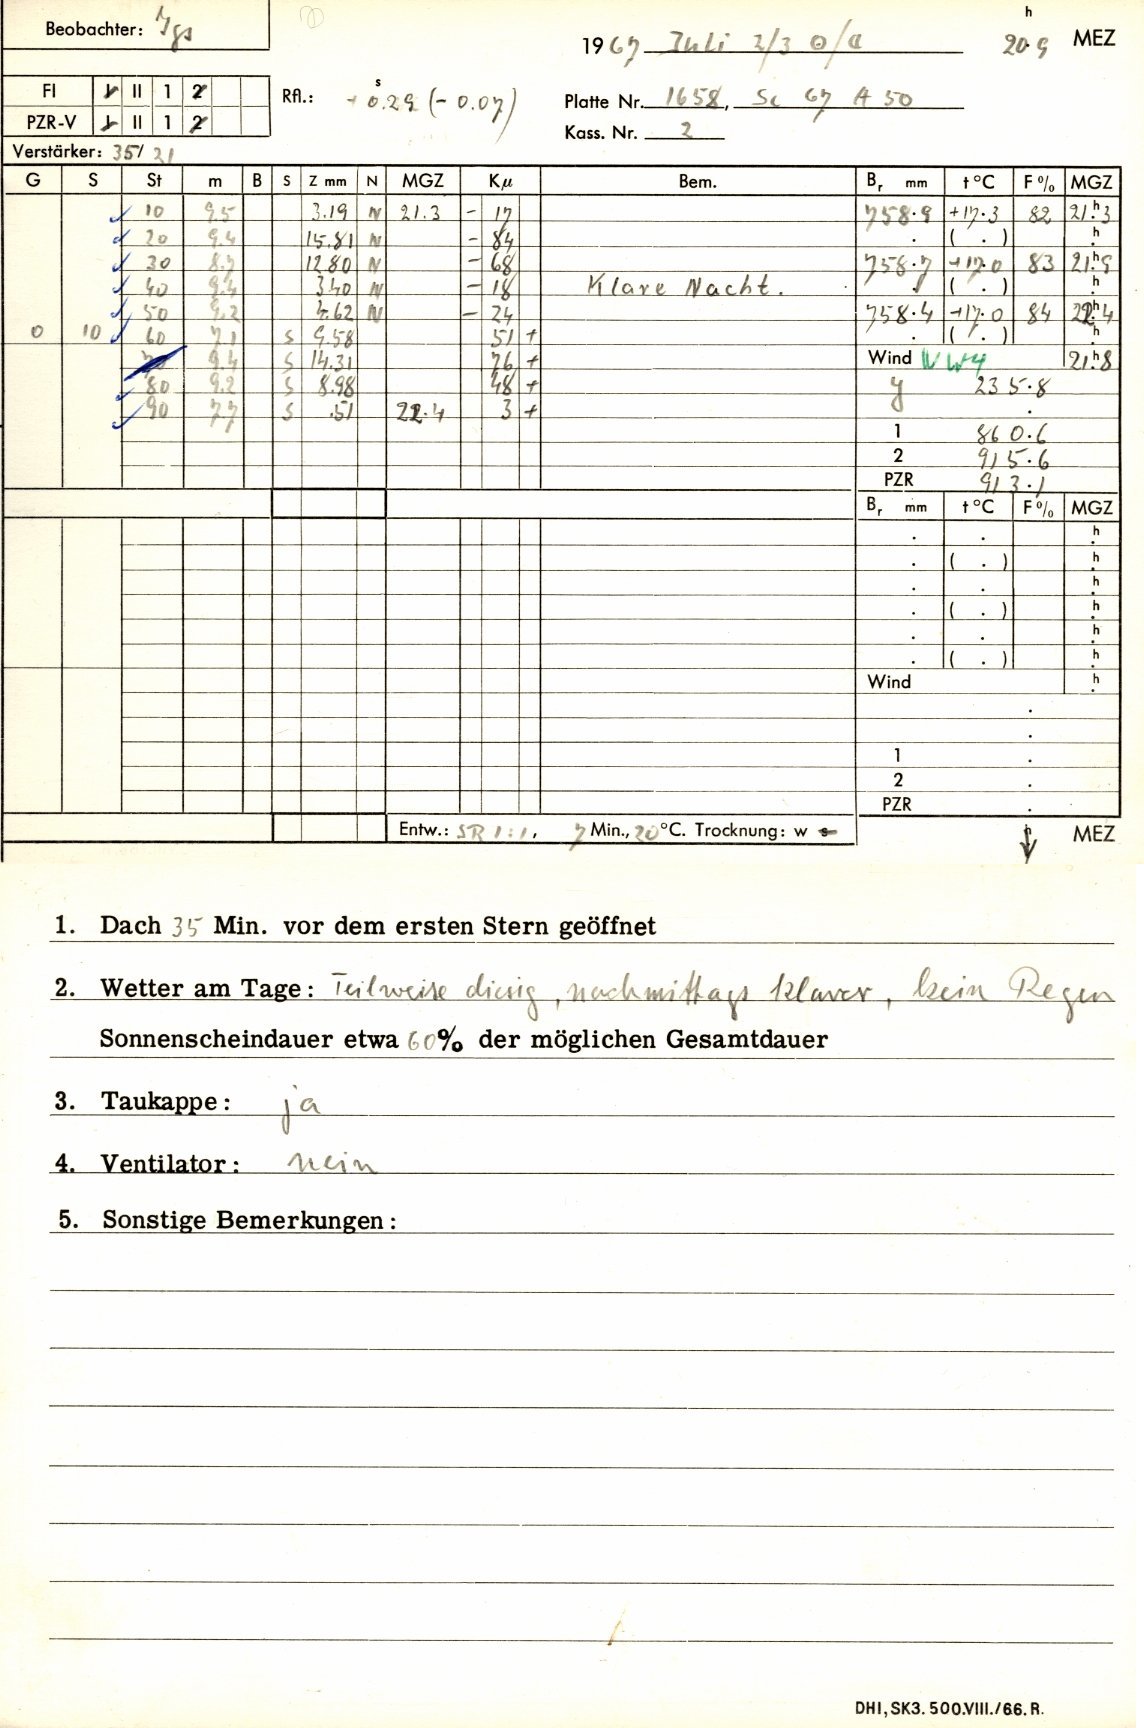 Beobachter: Jgs
h
1967 Juli 2/3 ⊙/☾ 20.9 MEZ
FI I II 1 2
Rfl.: + 0.29 (- 0.07)
s
Platte Nr. 1658, Sc 67 A 50
PZR-V I II 1 2
Kass. Nr. 2
Verstärker: 35/21
G S St m B S Z mm N MGZ Kμ Bem. Br mm t °C F % MGZ
10 9.5 3.19 N 21.3 - 17 758.9 +17.3 82 21.h3
20 9.4 15.81 N - 84 . ( . ) h
30 8.7 12.80 N - 68 758.7 +17.0 83 21.h9
40 9.4 3.40 N - 18 Klare Nacht. . ( . ) h
50 9.2 4.62 N - 24 758.4 +17.0 84 22.h4
0 10 60 7.1 S 9.58 51 + . ( . ) h
70 9.4 S 14.31 76 + Wind NW4 21.h8
80 9.2 S 8.98 48 + y 235.8
90 7.7 S .51 22.4 3 + .
1 860.6
2 915.6
PZR 913.1
Br mm t °C F % MGZ
. . h
. ( . ) h
. . h
. ( . ) h
. . h
. ( . ) h
Wind h
.
.
1 .
2 .
PZR .
Entw.: SR 1:1, 7 Min., 20 °C. Trocknung: w
MEZ
1. Dach 35 Min. vor dem ersten Stern geöffnet
2. Wetter am Tage: Teilweise diesig, nachmittags klarer, kein Regen
Sonnenscheindauer etwa 60% der möglichen Gesamtdauer
3. Taukappe: ja
4. Ventilator: nein
5. Sonstige Bemerkungen:
DHI, SK3. 500.VIII./66. R.